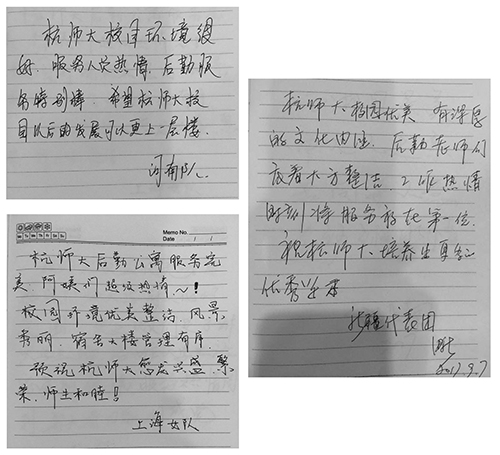 杭师大校园环境很
好,服务人员热情,后勤服
务特别棒,希望杭师大校
园以后的发展可以更上一层楼.
河南队.
Memo No.
Date / /
杭师大后勤公寓服务完
美,阿姨们超级热情~!
校园环境优美整洁,风景
秀丽,宿舍大楼管理有序.
预祝杭师大愈发兴盛,繁
荣,师生和睦!
上海女队
杭师大校园优美,有深厚
的文化内涵.后勤老师们
衣着大方整洁,工作热情
时刻将服务放在第一位.
祝杭师大培养出更多
优秀学子
新疆代表团
2017.9.7